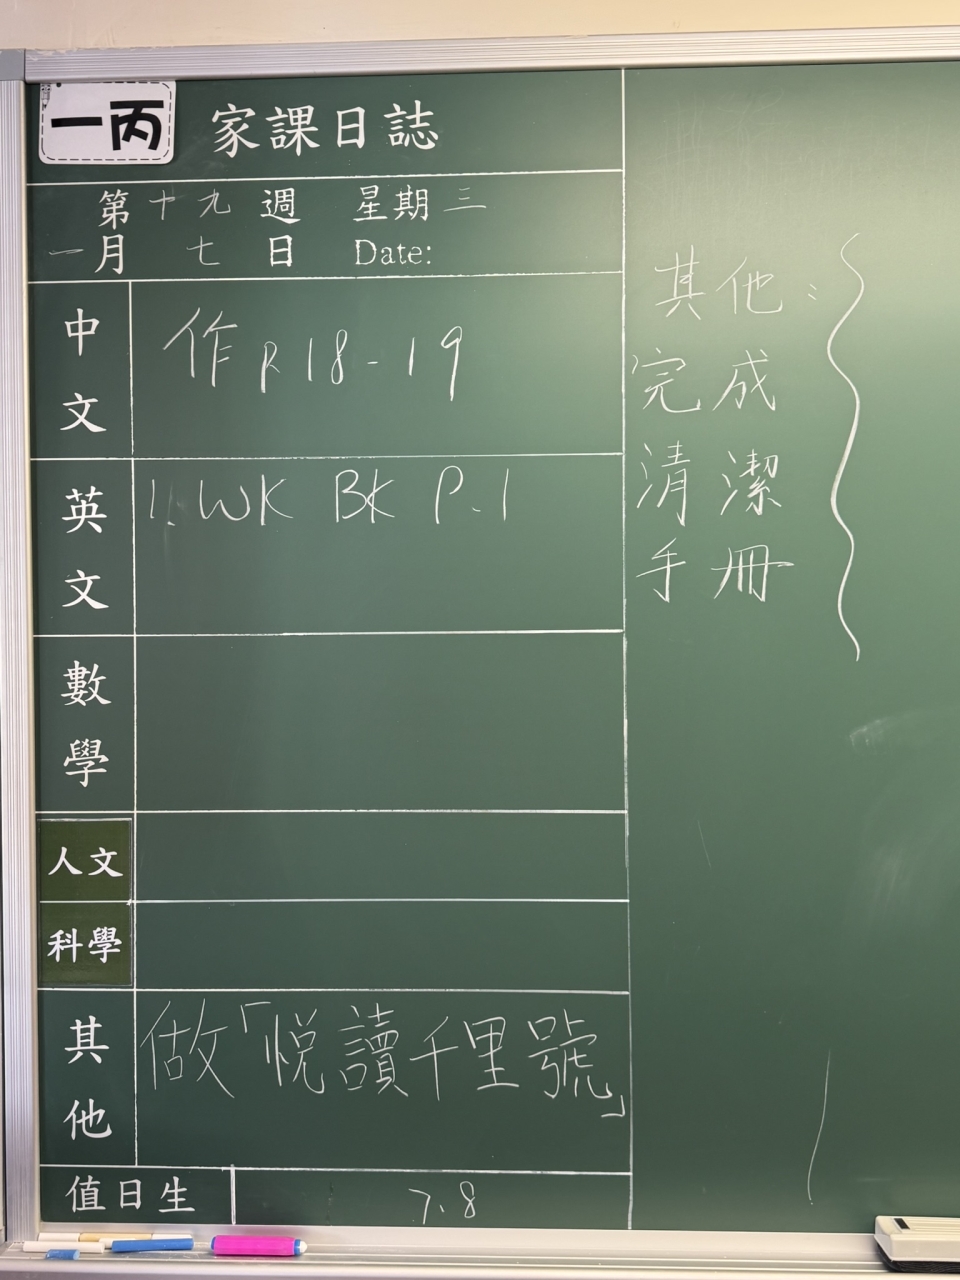 一丙 家課日誌
第十九週 星期三
一月七日 Date:
中文 作 P.18-19
英文 1. WK BK P.1
數學
人文
科學
其他 做「悦讀千里號」
值日生 7.8
其他：
完成
清潔
手冊